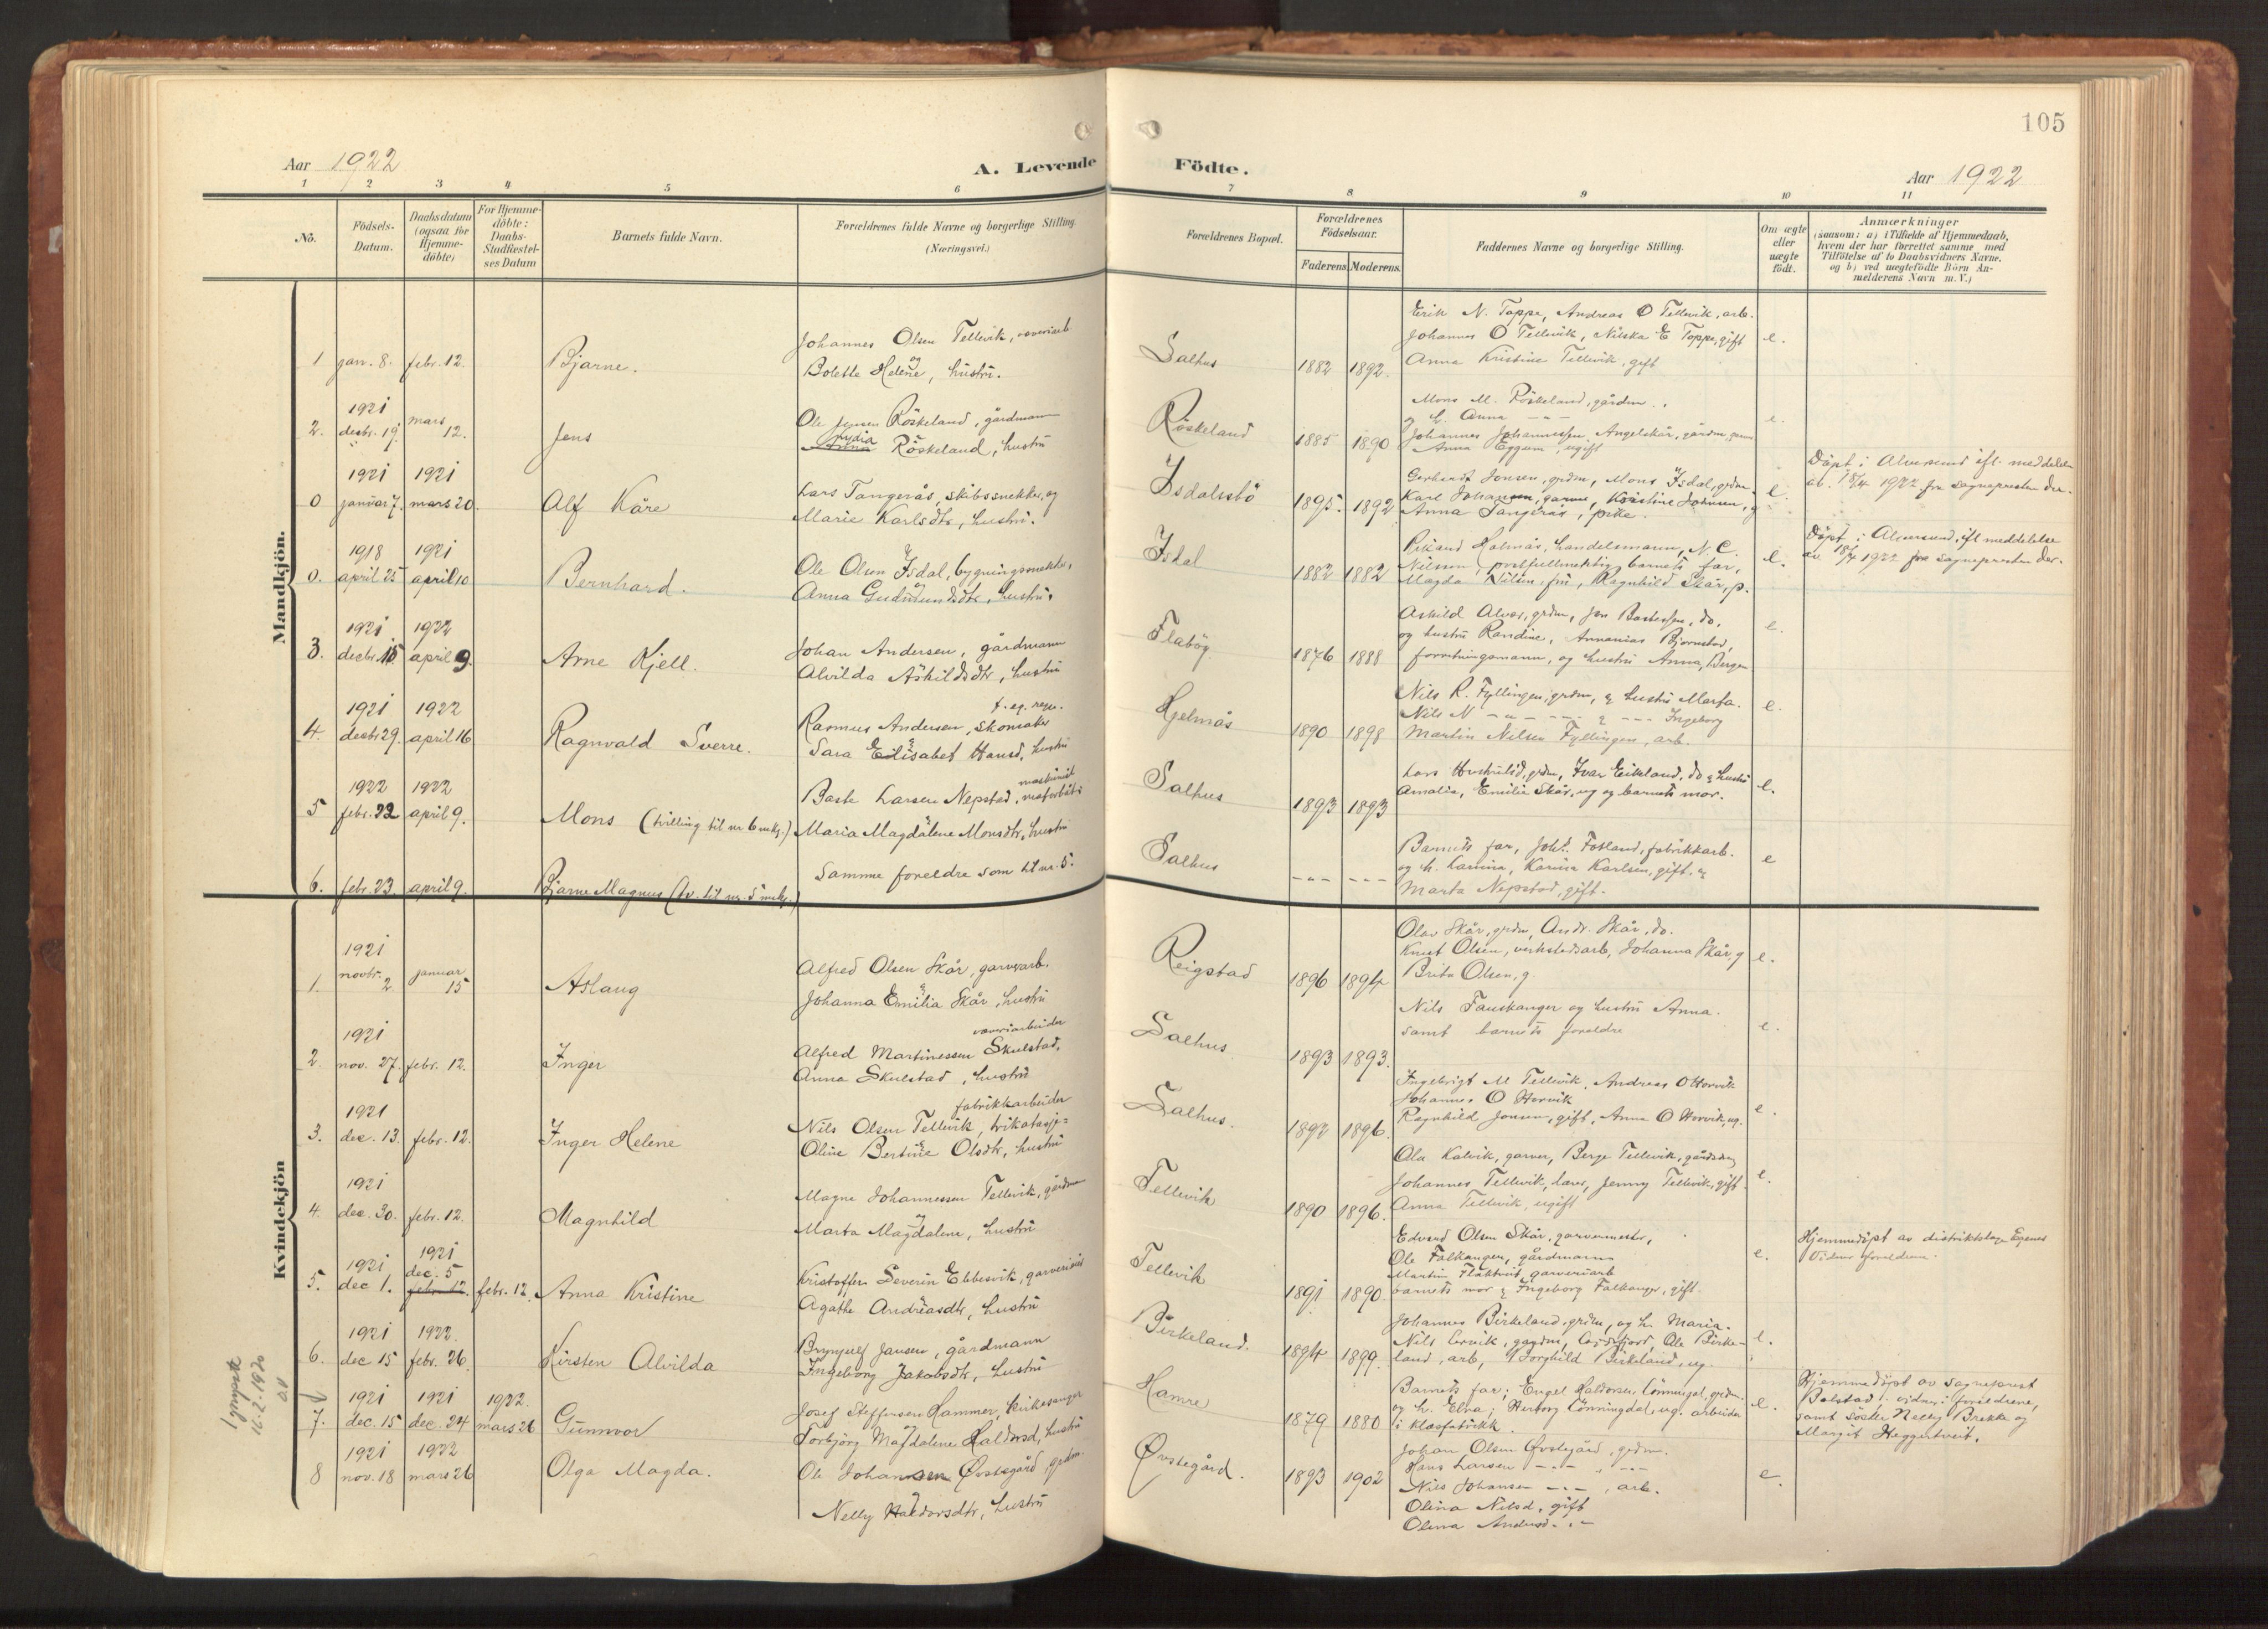 105
Aar 1922
A. Levende Födte.
Aar 1922
1 2 3 4 5 6 7 8 9 10 11
No.
Födsels-
Datum.
Daabsdatum
(ogsaa for
Hjemme-
döbte)
For Hjemme-
döbte:
Daabs-
Stadfæstel-
ses Datum
Barnets fulde Navn.
Forældrenes fulde Navne og borgerlige Stilling.
(Næringsvei.)
Forældrenes Bopæl.
Forældrenes
Födselsaar.
Faderens. Moderens.
Faddernes Navne og borgerlige Stilling.
Om ægte
eller
uægte
födt.
Anmærkninger
(saasom: a) i Tilfælde af Hjemmedaab,
hvem der har forrettet samme med
Tilföielse af to Daabsvidners Navne.
og b) ved uægtefödte Börn An-
melderens Navn m. V.)
Mandkjön.
1 jan. 8. febr. 12. Bjarne.
Johannes Olsen Tellevik, væveriarb.
og
Bolette Helene, hustru.
Salhus 1882 1892.
Erik N. Toppe, Andreas O Tellevik, arb.
Johannes O Tellevik, Nilska E Toppe, gift
Anna Kristine Tellevik, gift
e.
1921
2. decbr. 19. mars 12. Jens
Ole Jensen Röskeland, gårdmann
Lydia
Anna Röskeland, hustru
Röskeland 1885 1890
Mons M. Röskeland, gårdm.
og h. Anna - - -
Johannes Johannessen Angelskår, gårdm,
Anna Eggum, ugift
e.
1921 1921
0 januar 7. mars 20. Alf Kåre
Lars Tangerås, skibssnekker, og
Marie Karlsdtr, hustru.
Isdalstö 1895. 1892
Gerhardt Jonsen, grdm, Mons Isdal, grdm
Karl Johansen, garver, Kristine Johnsen, g
Anna Tangerås, pike.
e.
Döpt i Alversund ifl. meddelelse
ab. 18/4 1922 fra sognepresten der.
1918 1921
0. april 25 april 10 Bernhard.
Ole Olsen Isdal, bygningssnekker,
og
Anna Gudmundsdtr, hustru.
Isdal 1882 1882
Rikard Holmås, handelsmann, N. C.
Nilsen, postfullmektig, barnets far,
Magda Nilsen, fru, Ragnhild Skår, p.
e.
Döpt i Alversund, ifl meddelelse
av 18/4 1922 fra sognepresten der.
1921 1922
3. decbr. 15 april 9. Arne Kjell.
Johan Andersen, gårdmann
Alvilda Askildsdtr, hustru
Flatöy 1876 1888
Askild Alver, grdm, Jon Bastesen, do,
og hustru Randine, Annanias Bjørnstad,
forretningsmann, og hustru Anna, Bergen
e.
1921 1922
4. decbr. 29. april 16 Ragnvald Sverre.
f. eg. regn.
Rasmus Andersen, skomaker
Sara Elisabet Hansd, hustru
Hjelmås 1890 1898
Nils R. Fyllingen, grdm, & hustru Marta.
Nils N - - - - - & - - - Ingeborg
Martin Nilsen Fyllingen, arb.
e.
1922 1922
5 febr. 22 april 9. Mons (tvilling til nr 6 mkj.)
maskinist
Baste Larsen Nepstad, motorbåt
Maria Magdalene Monsdtr, hustru
Salhus 1893 1893
Lars Hustrulid, grdm, Ivar Eikeland, do & hustru
Amalia, Emilie Skår, ug og barnets mor.
e.
6. febr. 23 april 9. Bjarne Magnus (tv. til nr. 5 mkj.)
Samme foreldre som til nr. 5.
Salhus - - - - - -
Barnets far, Johs. Fotland, fabrikkarb.
og h. Lamina, Karina Karlsen, gift. &
Marta Nepstad, gift.
e
Kvindekjön
1921
1. novbr. 2. januar 15 Aslaug
Alfred Olsen Skår, garverarb.
Johanna Emilia Skår, hustru
Reigstad 1896 1894
Olav Skår, grdm, Andr. Skår, do.
Knut Olsen, verkstedsarb, Johanna Skår, g
Brita Olsen, g.
e.
1921
2. nov. 27. febr. 12. Inger
væveriarbeider
Alfred Martinessen Skulstad,
Anna Skulstad, hustru
Salhus 1893 1893.
Nils Fauskanger og hustru Anna.
samt barnets foreldre
e.
1921
3. dec. 13. febr. 12. Inger Helene
fabrikkarbeider
Nils Olsen Tellevik, trikotasje-
Oline Bertine Olsdtr, hustru
Salhus. 1892 1896.
Ingebrigt M Tellevik, Andreas O Horvik
Johannes O Horvik
Ragnhild Jonsen, gift, Anna O Horvik, ug.
e.
1921
4. dec. 30. febr. 12. Magnhild
Magne Johannessen Tellevik, gårdm
og
Marta Magdalene, hustru
Tellevik 1890 1896.
Ola Kalvik, garver, Berge Tellevik, gårdsdreng
Johannes Tellevik, lærer, Jenny Tellevik, gift
Anna Tellevik, ugift
e.
1921 1921
5. dec 1. dec. 5 febr. 12. febr. 12. Anna Kristine
Kristoffer Severin Ebbesvik, garveriarb
Agathe Andreasdtr, hustru
Tellevik 1891 1890
Edvard Olsen Skår, garvermester,
Ole Falkanger, gårdmann
Martin Flaktveit, garveriarb
barnets mor & Ingeborg Falkanger, gift.
e.
Hjemmedöpt av distriktslæge Egenes
Vidner foreldrene.
1921 1922.
6. dec 15 febr. 26. Kirsten Alvilda
Brynjulf Jansen, gårdmann
Ingeborg Jakobsdtr, hustru
Birkeland. 1894 1899.
Johannes Birkeland, grdm, og h. Maria.
Nils Lervik, grdm, Ole Birke-
land, arb, Borghild Birkeland, ug.
e.
1921 1921 1922.
7. dec. 15 dec. 24 mars 26 Gunnvor
Josef Steffensen Hammer, kirkesanger
Torbjörg Magdalene Haldorsd, hustru
Hamre 1879 1880
Barnets far; Engel Haldorsen Lönningdal, grdm.
og h. Elna; Herborg Lönningdal, ug. arbeider
i klæsfabrikk.
e.
Hjemmedöpt av sogneprest
Bolstad; vidner: foreldrene,
samt söster Nelly Brekke og
Margit Heggertveit.
1921 1922
8 nov. 18 mars 26 Olga Magda.
Ole Johansen Øvstegård, grdm.
Nelly Haldorsdtr, hustru
Øvstegård. 1893 1902
Johan Olsen Øvstegård, grdm.
Hans Larsen - - - „ - - -
Nils Johansen - - - , arb.
Olina Nilsd, gift
Olina Andersd - „ -
e.
16.2.1970